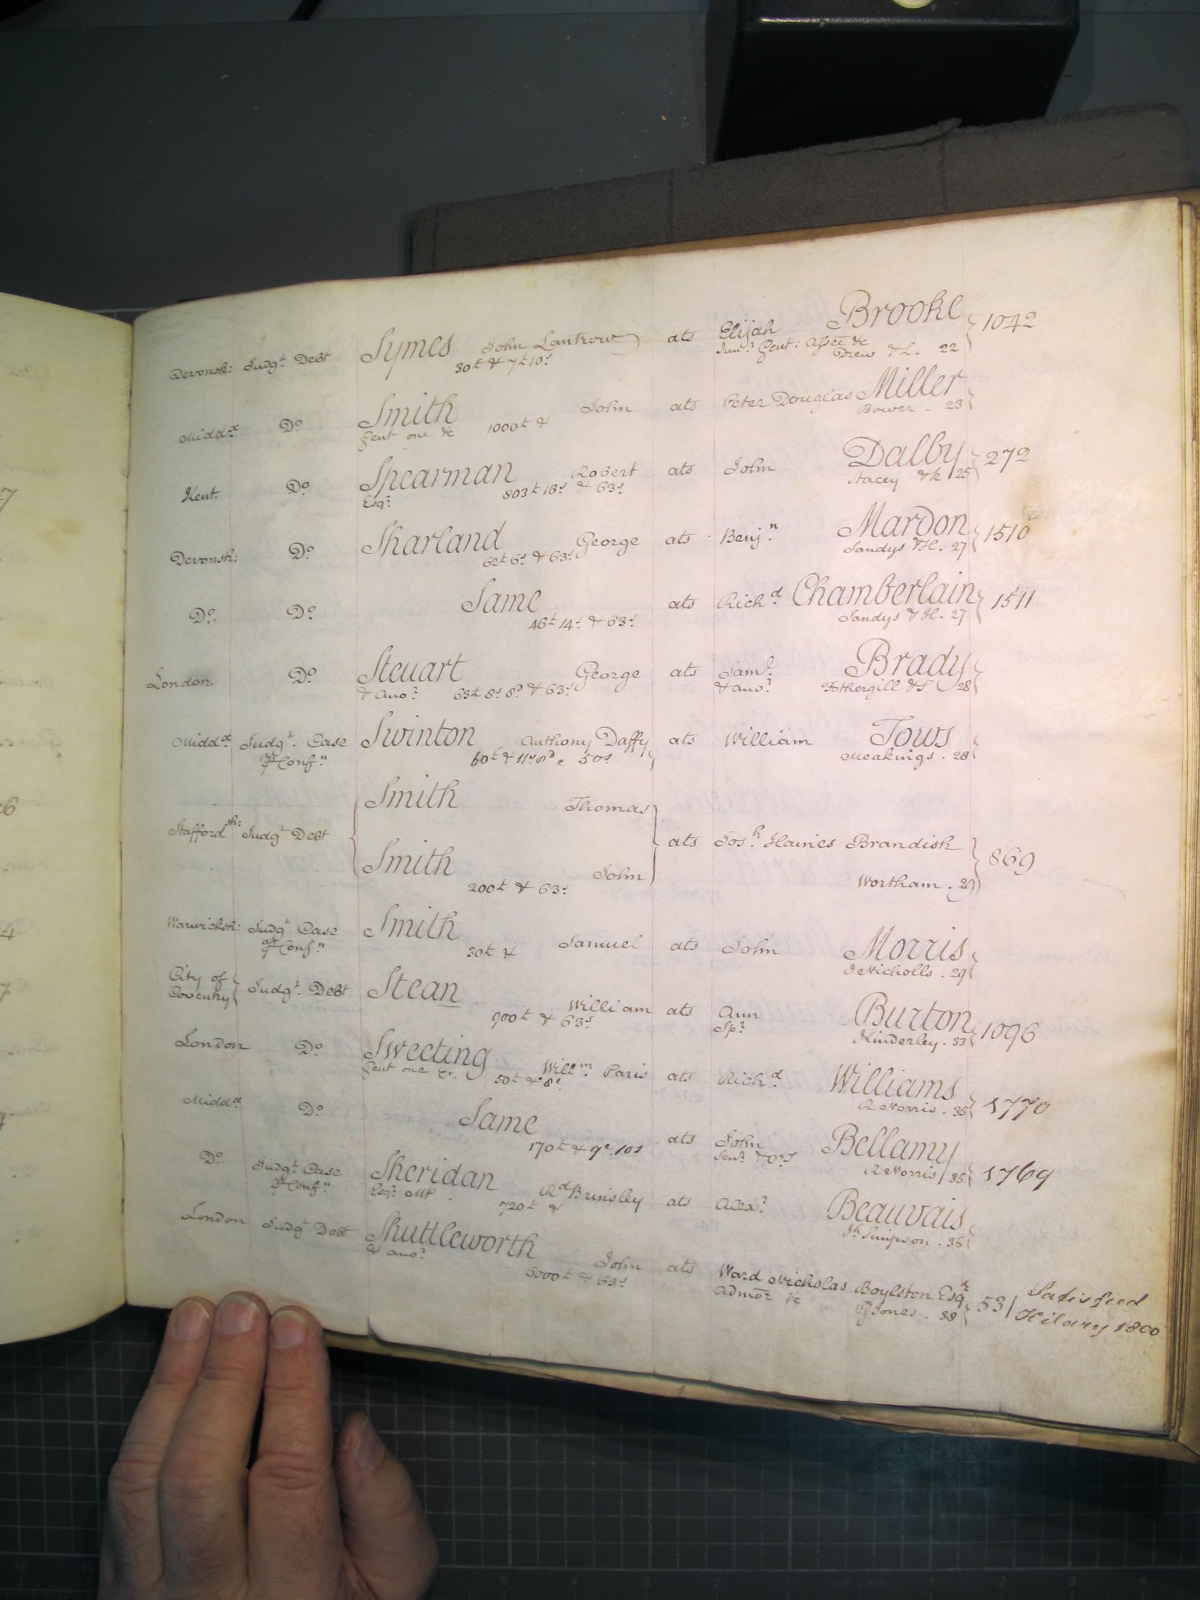 Devonsh: Judgt. Debt Symes John Lantrow ats Elijah Brooke 1042
30£ & 7£ 10s Junr. Gent: Assee &c Drew & L. 22
Middx Do. Smith John ats Peter Douglas Miller
Gent one &c 1000£ & Bower. 23
Kent Do. Spearman Robert ats John Dalby 272
Esqr. 803£ 18s & 63s Stacey &c 25
Devonsh: Do. Sharland George ats Benjn. Mardon 1510
62£ 6s & 63s Sandys & H. 27
Do. Do. Same ats Richd. Chamberlain 1511
46£ 14s & 63s Sandys & H. 27
London Do. Steuart George ats Saml. Brady
& anor. 63£ 8s 8d & 63s & anor. Fothergill & S 28
Middx Judgt. Case Swinton Anthony Daffy ats William Tows
pr Confn. 60£ & 11s 8d & 50s Meakings. 28
Smith Thomas
Staffordsh: Judgt Debt ats Josh Haines Brandish 869
Smith John Wortham. 29
200£ & 63s
Warwicksh: Judgt Case Smith Samuel ats John Morris
pr Confn. 30£ & J Nicholls. 29
City of Coventry Judgt. Debt Stean William ats Ann Burton 1096
900£ & 63s Spr. Kinderley. 33
London Do. Sweeting Willm. Paris ats Richd. Williams 1770
Gent one &c. 50£ & 8s R Norris. 35
Middx Do. Same ats John Bellamy 1769
170£ & 9£. 10s Senr. R Norris 35
Do. Judgt. Case Sheridan Rd Brinsley ats Alexr. Beauvais
pr Confn. Esqr. 720£ & Simpson. 35
London Judgt Debt Shuttleworth John ats Ward Nicholas Boylston Esqr 53 Satisfied
& anor. 6000£ & 63s Admor &c Jones. 38 Hilary 1800